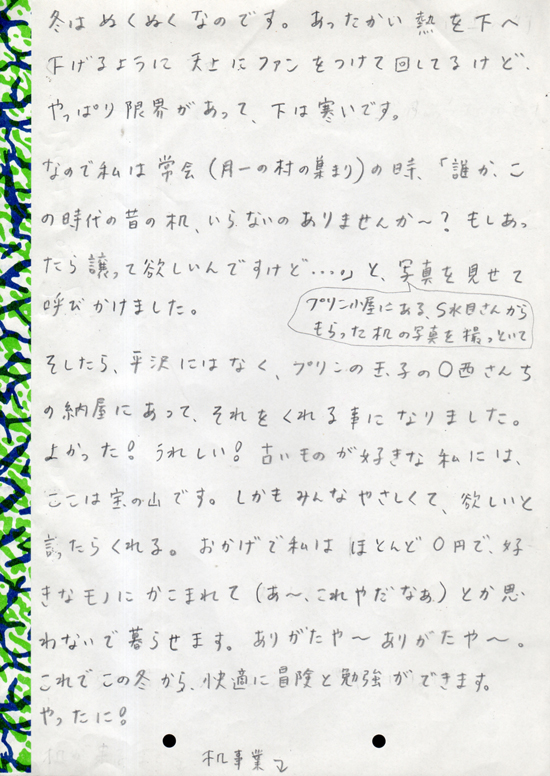 冬はぬくぬくなのです。あったかい熱を下へ
下げるように天上にファンをつけて回してるけど、
やっぱり限界があって、下は寒いです。
なので私は常会(月一の村の集まり)の時、「誰か、こ
の時代の昔の机、いらないのありませんか〜?もしあっ
たら譲って欲しいんですけど…。」と、写真を見せて
呼びかけました。
プリン小屋にある、S水目さんから
もらった机の写真を撮っといて
そしたら、平沢にはなく、プリンの玉子の〇西さんち
の納屋にあって、それをくれる事になりました。
よかった!うれしい!古いものが好きな私には、
ここは宝の山です。しかもみんなやさしくて、欲しいと
言ったらくれる。おかげで私はほとんど0円で、好
きなモノにかこまれて(あ〜、これやだなぁ)とか思
わないで暮らせます。ありがたや〜ありがたや〜。
これでこの冬から、快適に冒険と勉強ができます。
やったに!
机事業